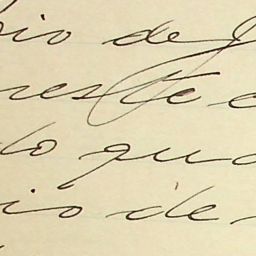 io de
reste e
do qua
io de